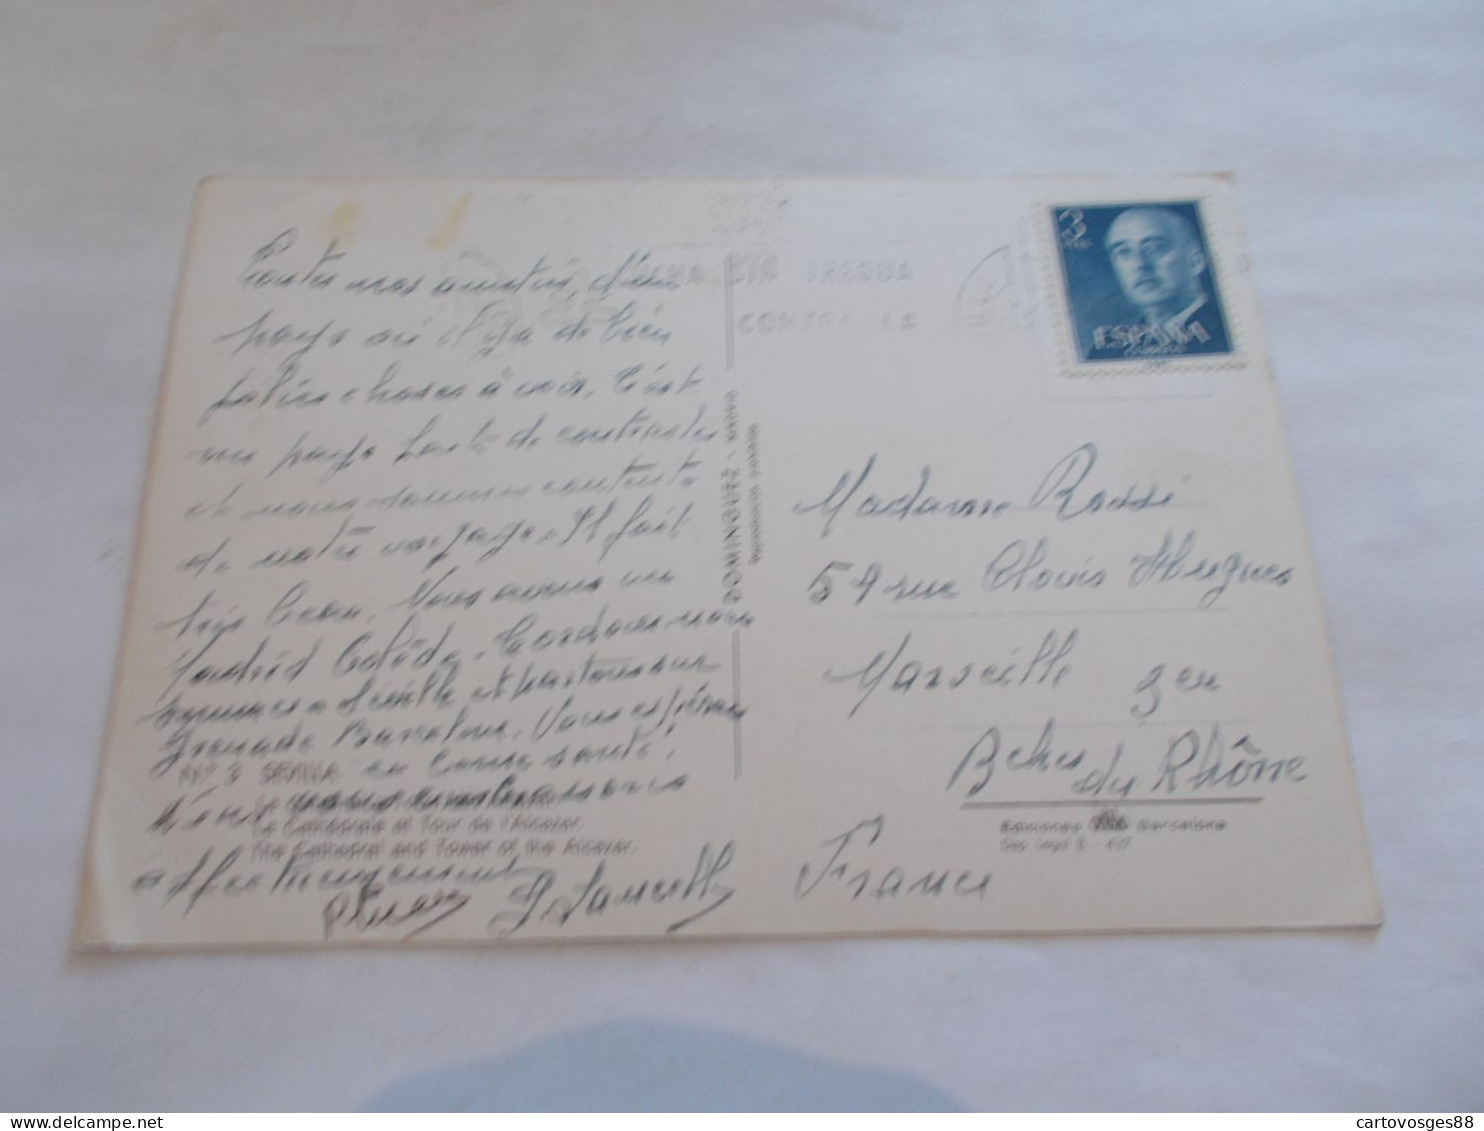 Toutes nos amitiés, d'un
pays où il y a de bien
jolies choses à voir. C'est
un pays fait de contrastes
et nous sommes contents
de notre voyage. Il fait
très beau. Nous avons vu
Madrid Tolède, Cordoue nous
sommes à Séville et partons sur
Grenade Barcelone. Vous espérons
en bonne santé!
Nº 3 SEVILLA
La Cathédrale et Tour de l'Alcazar.
The Cathedral and Tower of the Alcazar.
Nous vous embrassons
affectueusement
DOMINGUEZ - MADRID
SIN TREGUA
CONTRA LA
3
PTAS
ESPAÑA
CORREOS
Madame Rossi
59 rue Clovis Hugues
Marseille 3eu
Bches du Rhône
Ediciones Barcelona
Dep. Legal B. - 637
France
cartovosges88